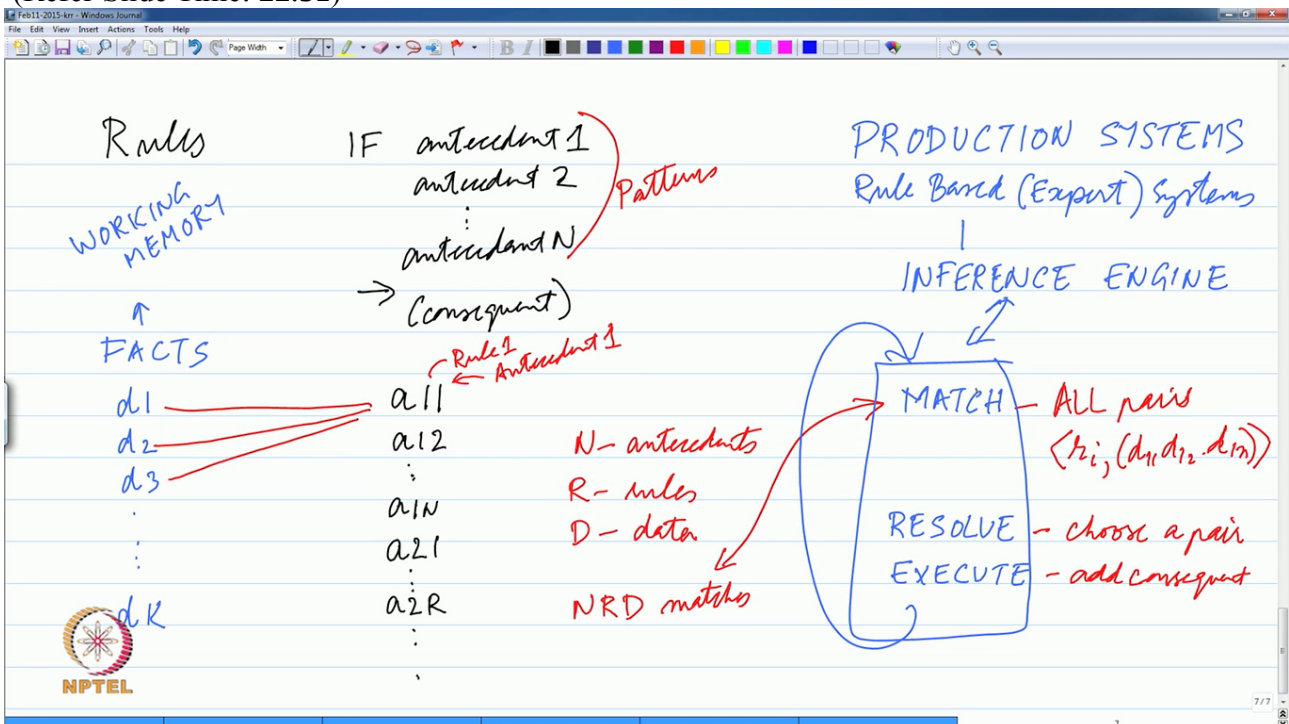 (Refer Slide Time: 22:32)
Feb11-2015-krr - Windows Journal
File Edit View Insert Actions Tools Help
Page Width
Rules
WORKING
MEMORY
↑
FACTS
d1
d2
d3
⋮
⋮
dK
IF antecedent 1
antecedent 2
⋮
antecedent N
→ (consequent)
Patterns
Rule 1
← Antecedent 1
a11
a12
⋮
a1N
a21
⋮
a2R
⋮
N - antecedents
R - rules
D - data
NRD matches
PRODUCTION SYSTEMS
Rule Based (Expert) Systems
INFERENCE ENGINE
MATCH - ALL pairs
⟨ri, (d11, d12 .. d1n)⟩
RESOLVE - choose a pair
EXECUTE - add consequent
NPTEL
7/7